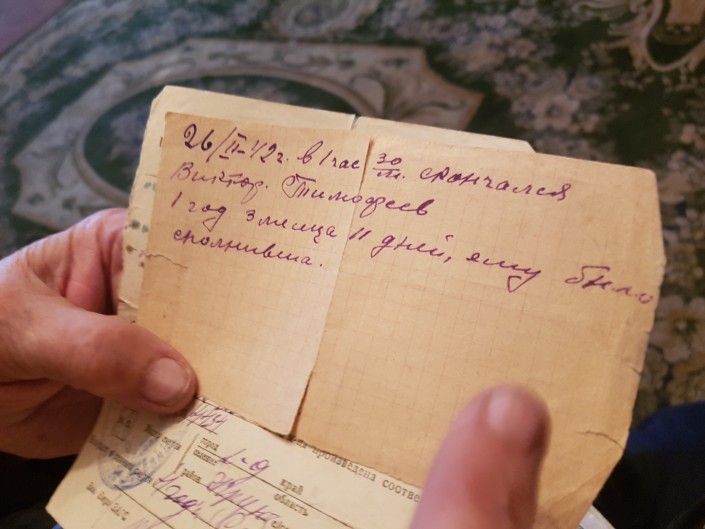 26/II-42 г. в 1 час 30 м. скончался
Виктор. Тимофеев
1 год 3 месяца 11 дней, ему было
сполнивша.
произведена соответ
город
селение
край
область
район